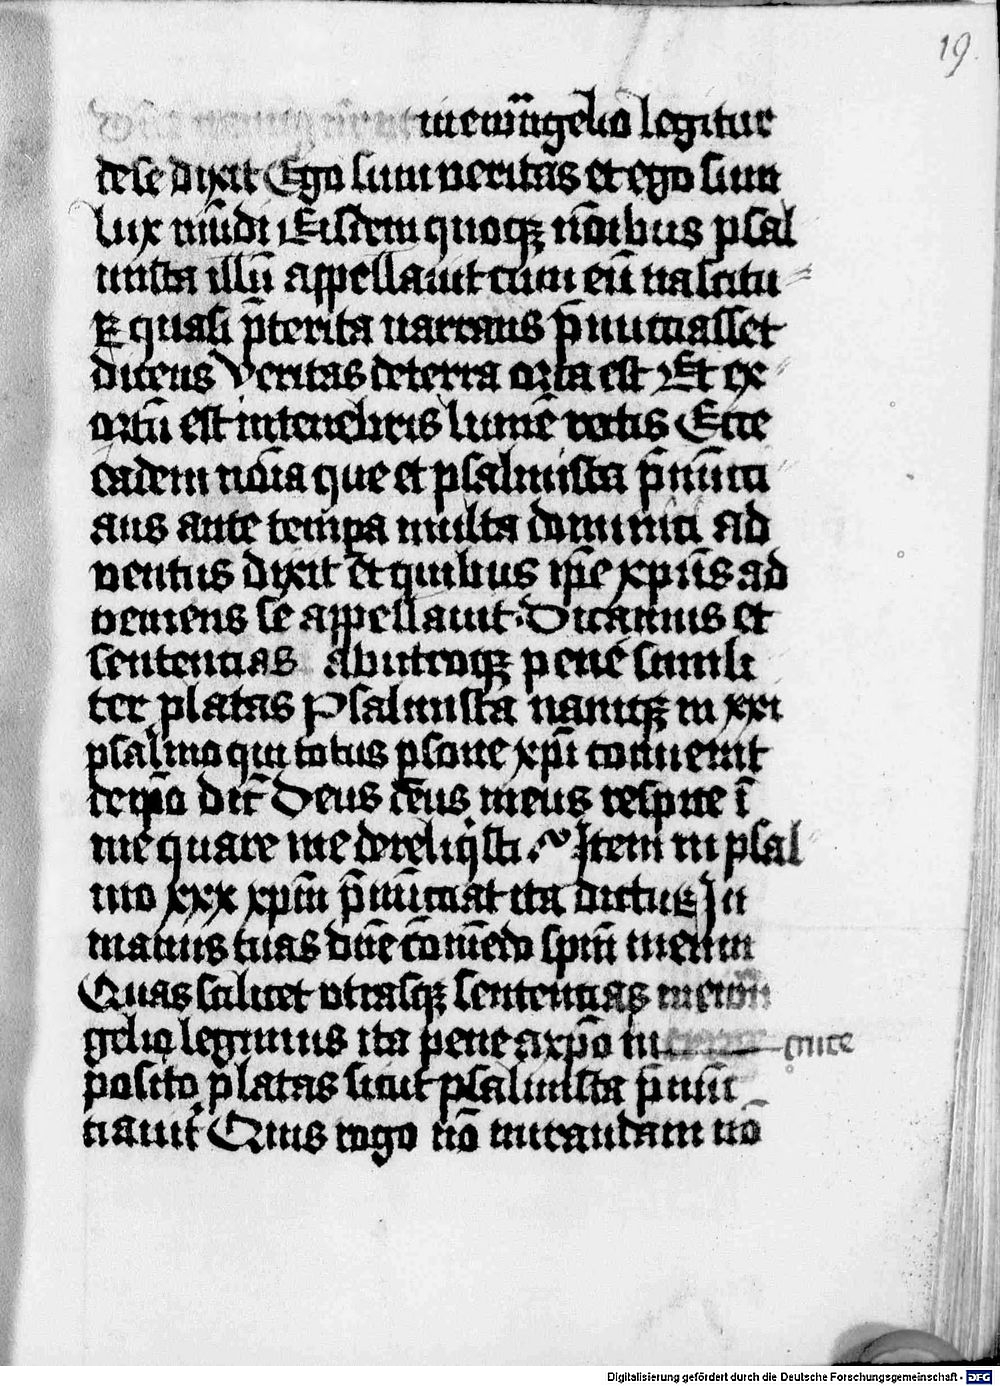 19.
in ewͫngelio legitur
de se dixit Ego sum veritas et ego sum
lux mūdi Eisdem quoqꝫ nōibus psal
mista illū appellauit cum eū nascitu⸗
ꝝ quasi p̄terita narrans p̄nuntiasset
dicens Veritas de terra orta est Et ex⸗
ortū est in tenebris lumē rectis Ecce
eadem nōia que et psalmista p̄nūcci
ans ante tempa multa dominici ad
ventus dixit et quibus ip̄e xp̄us ad
veniens se appellauit. Dicamus et
sentencias ab utroqꝫ pene simili
ter ꝓlatas Psalmista namqꝫ in xxi
psalmo qui totus ꝑsone xp̄i conuenit
de ip̄o dic̄t Deus deus meus respice ī
me quare me dereliqͥsti Item in psal
mo xxx xp̄m p̄nūctiat ita dicturꝝ In
manus tuas dn̄e cōmēdo spm̄ meum
Quas scilicet vtrasqꝫ sentencias in ewͫn
gelio legimus ita pene a xp̄o in cruce
posito ꝓlatas sicut psalmista p̄nūn
tiauit Quis rogo nō mirandam nō
Digitalisierung gefördert durch die Deutsche Forschungsgemeinschaft - DFG